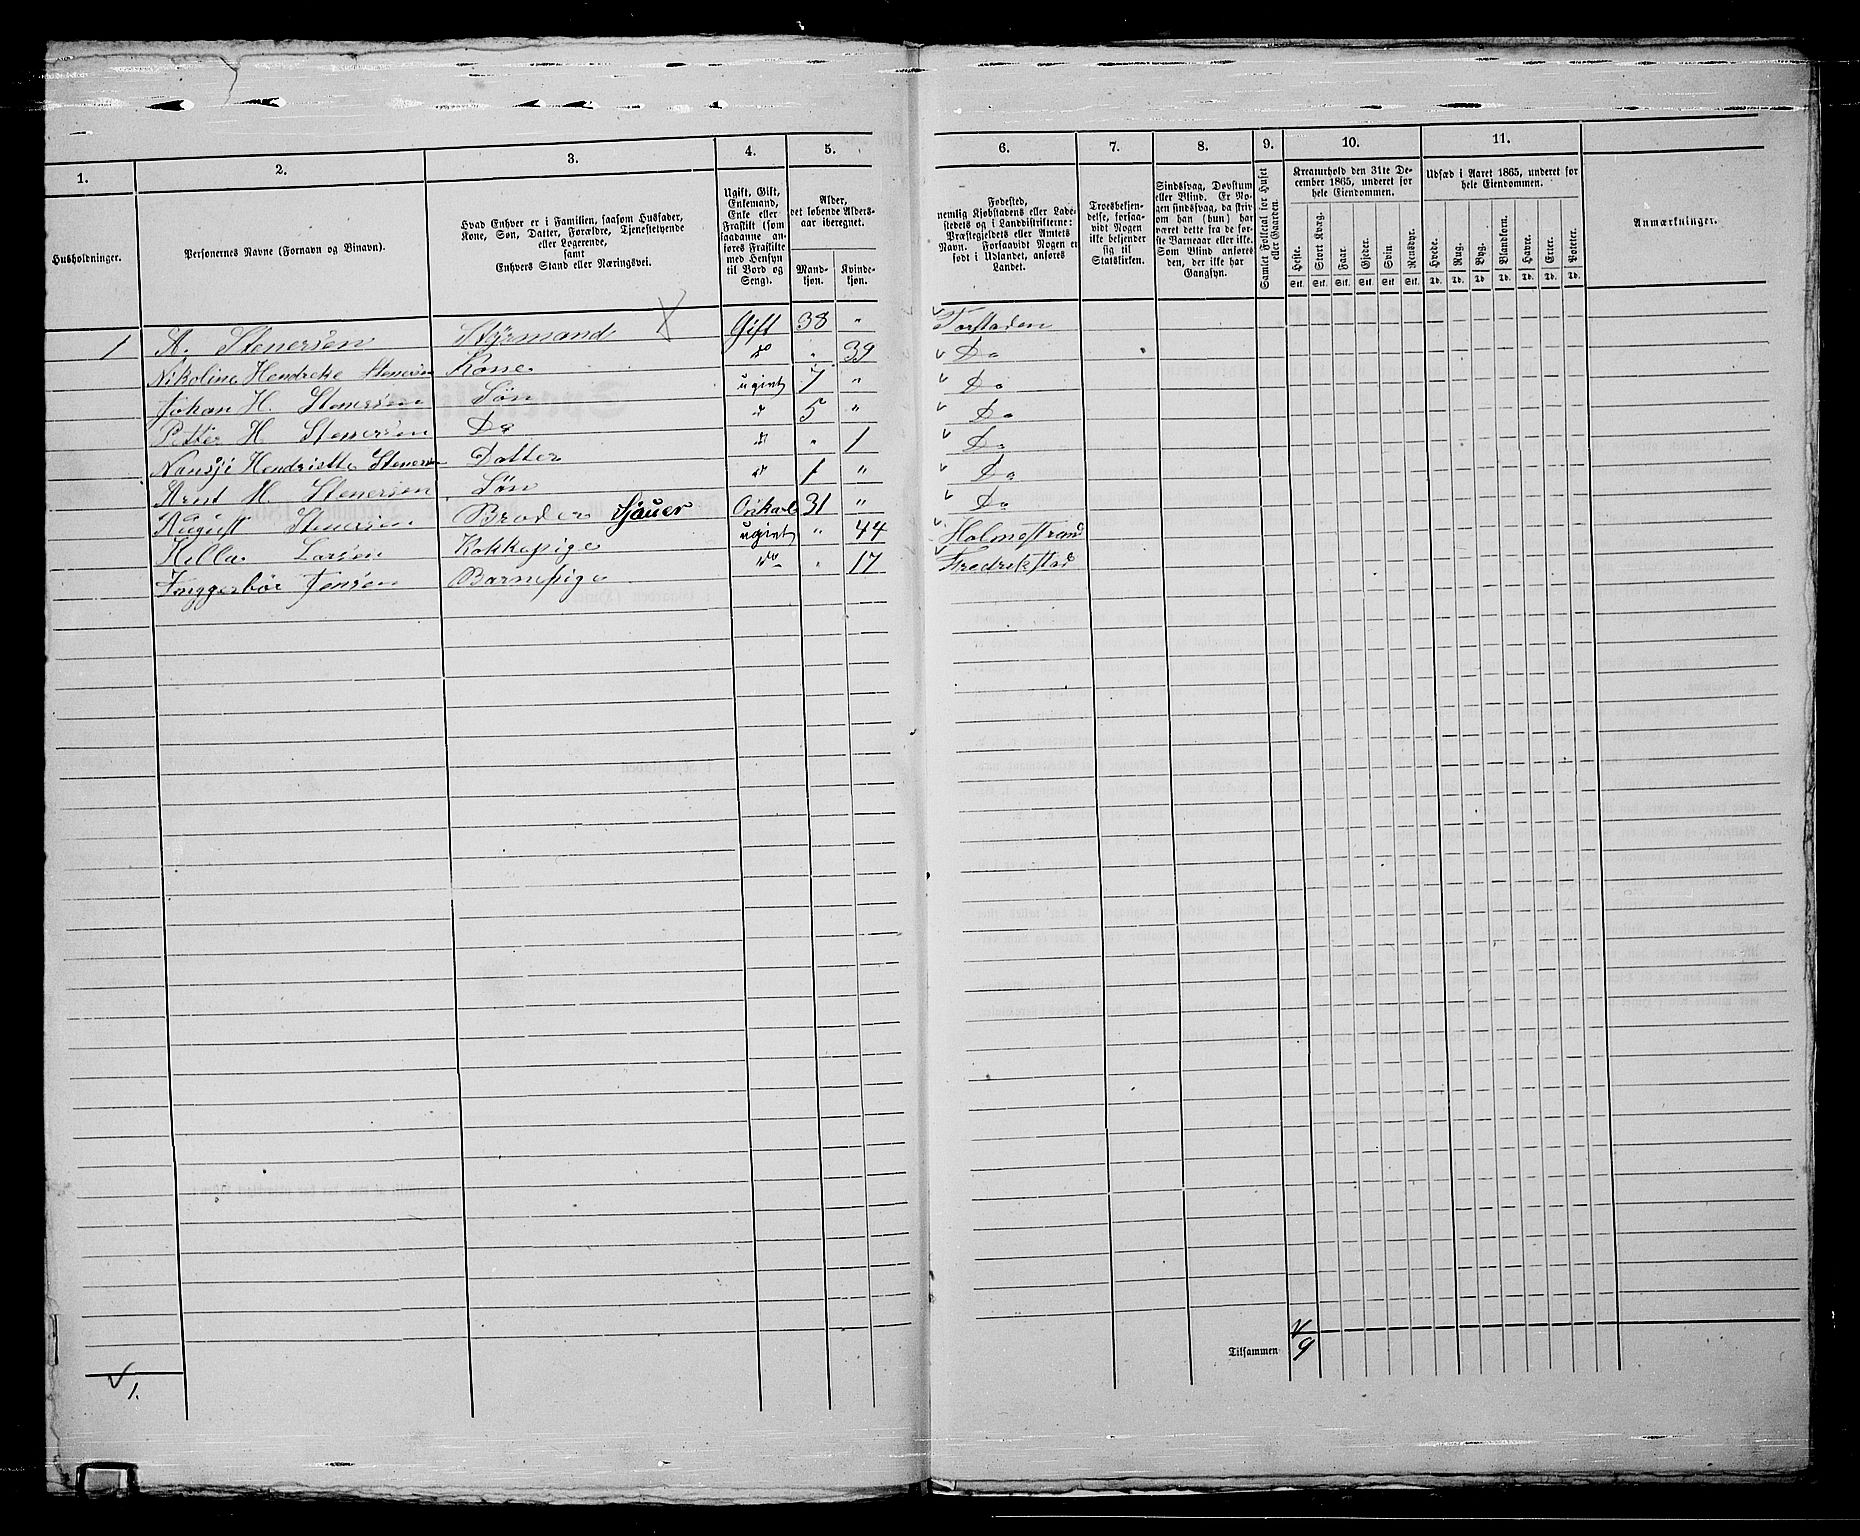 1. 2. 3. 4. 5. 6. 7. 8. 9. 10. 11.
Husholdninger.
Personernes Navne (Fornavn og Binavn).
Hvad Enhver er i Familien, saasom Husfader,
Kone, Søn, Datter, Forældre, Tjenestetyende
eller Logerende,
samt
Enhvers Stand eller Næringsvei.
Ugift, Gift,
Enkemand,
Enke eller
Fraskilt (som
saadanne an-
føres Fraskilte
med Hensyn
til Bord og
Seng).
Alder,
det løbende Alders-
aar iberegnet.
Mand-
kjøn.
Kvinde-
kjøn.
Fødested,
nemlig Kjøbstadens eller Lade-
stedets og i Landdistrikterne:
Præstegjeldets eller Annexets
Navn. Forsaavidt Nogen er
født i Udlandet, anføres
Landet.
Troesbekjen-
delse, forsaa-
vidt Nogen
ikke bekjender
sig
til
Statskirken.
Sindssvag, Døvstum
eller Blind. Er No-
gen sindssvag, da skriv-
om han (hun) har
været dette fra de før-
ste Barneaar eller ikke.
Som Blind anføres
den, der ikke har
Gangsyn.
Samlet Folketal for Huset
eller Gaarden.
Kreaturhold den 31te De-
cember 1865, underet for
hele Eiendommen.
Heste. Stort Kvæg. Faar. Gjeder. Svin Rensdyr.
Stk. Stk. Stk. Stk. Stk. Stk.
Udsæd i Aaret 1865, underet for
hele Eiendommen.
Hvede. Rug. Byg. Blandkorn. Havre. Erter. Poteter.
Td. Td. Td. Td. Td. Td. Td.
Anmærkninger.
1 A. Stenersen Styrmand X Gift 38 " Forstaden
Nikoline Hendreke Stenersen Kone do " 39 Do
Johan H. Stenersen Søn ugivt 7 " Do
Petter H Stenersen Do do 5 " Do
Nansji Hendriette Stenersen Datter do " 1 Do
Arnt M. Stenersen Søn do 1 " Do
August Stenersen Broder Sjauer 31 " Do
Hella Larsen Kokkepige ugivt " 44 Holmestrand
Inggerbór Jensen Barnepige do " 17 Fredrikstad
Tilsammen 9
1.